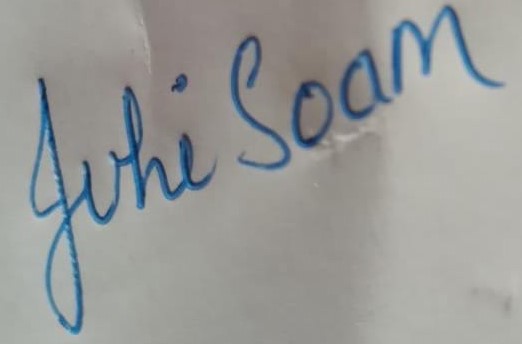 Juhi Soam